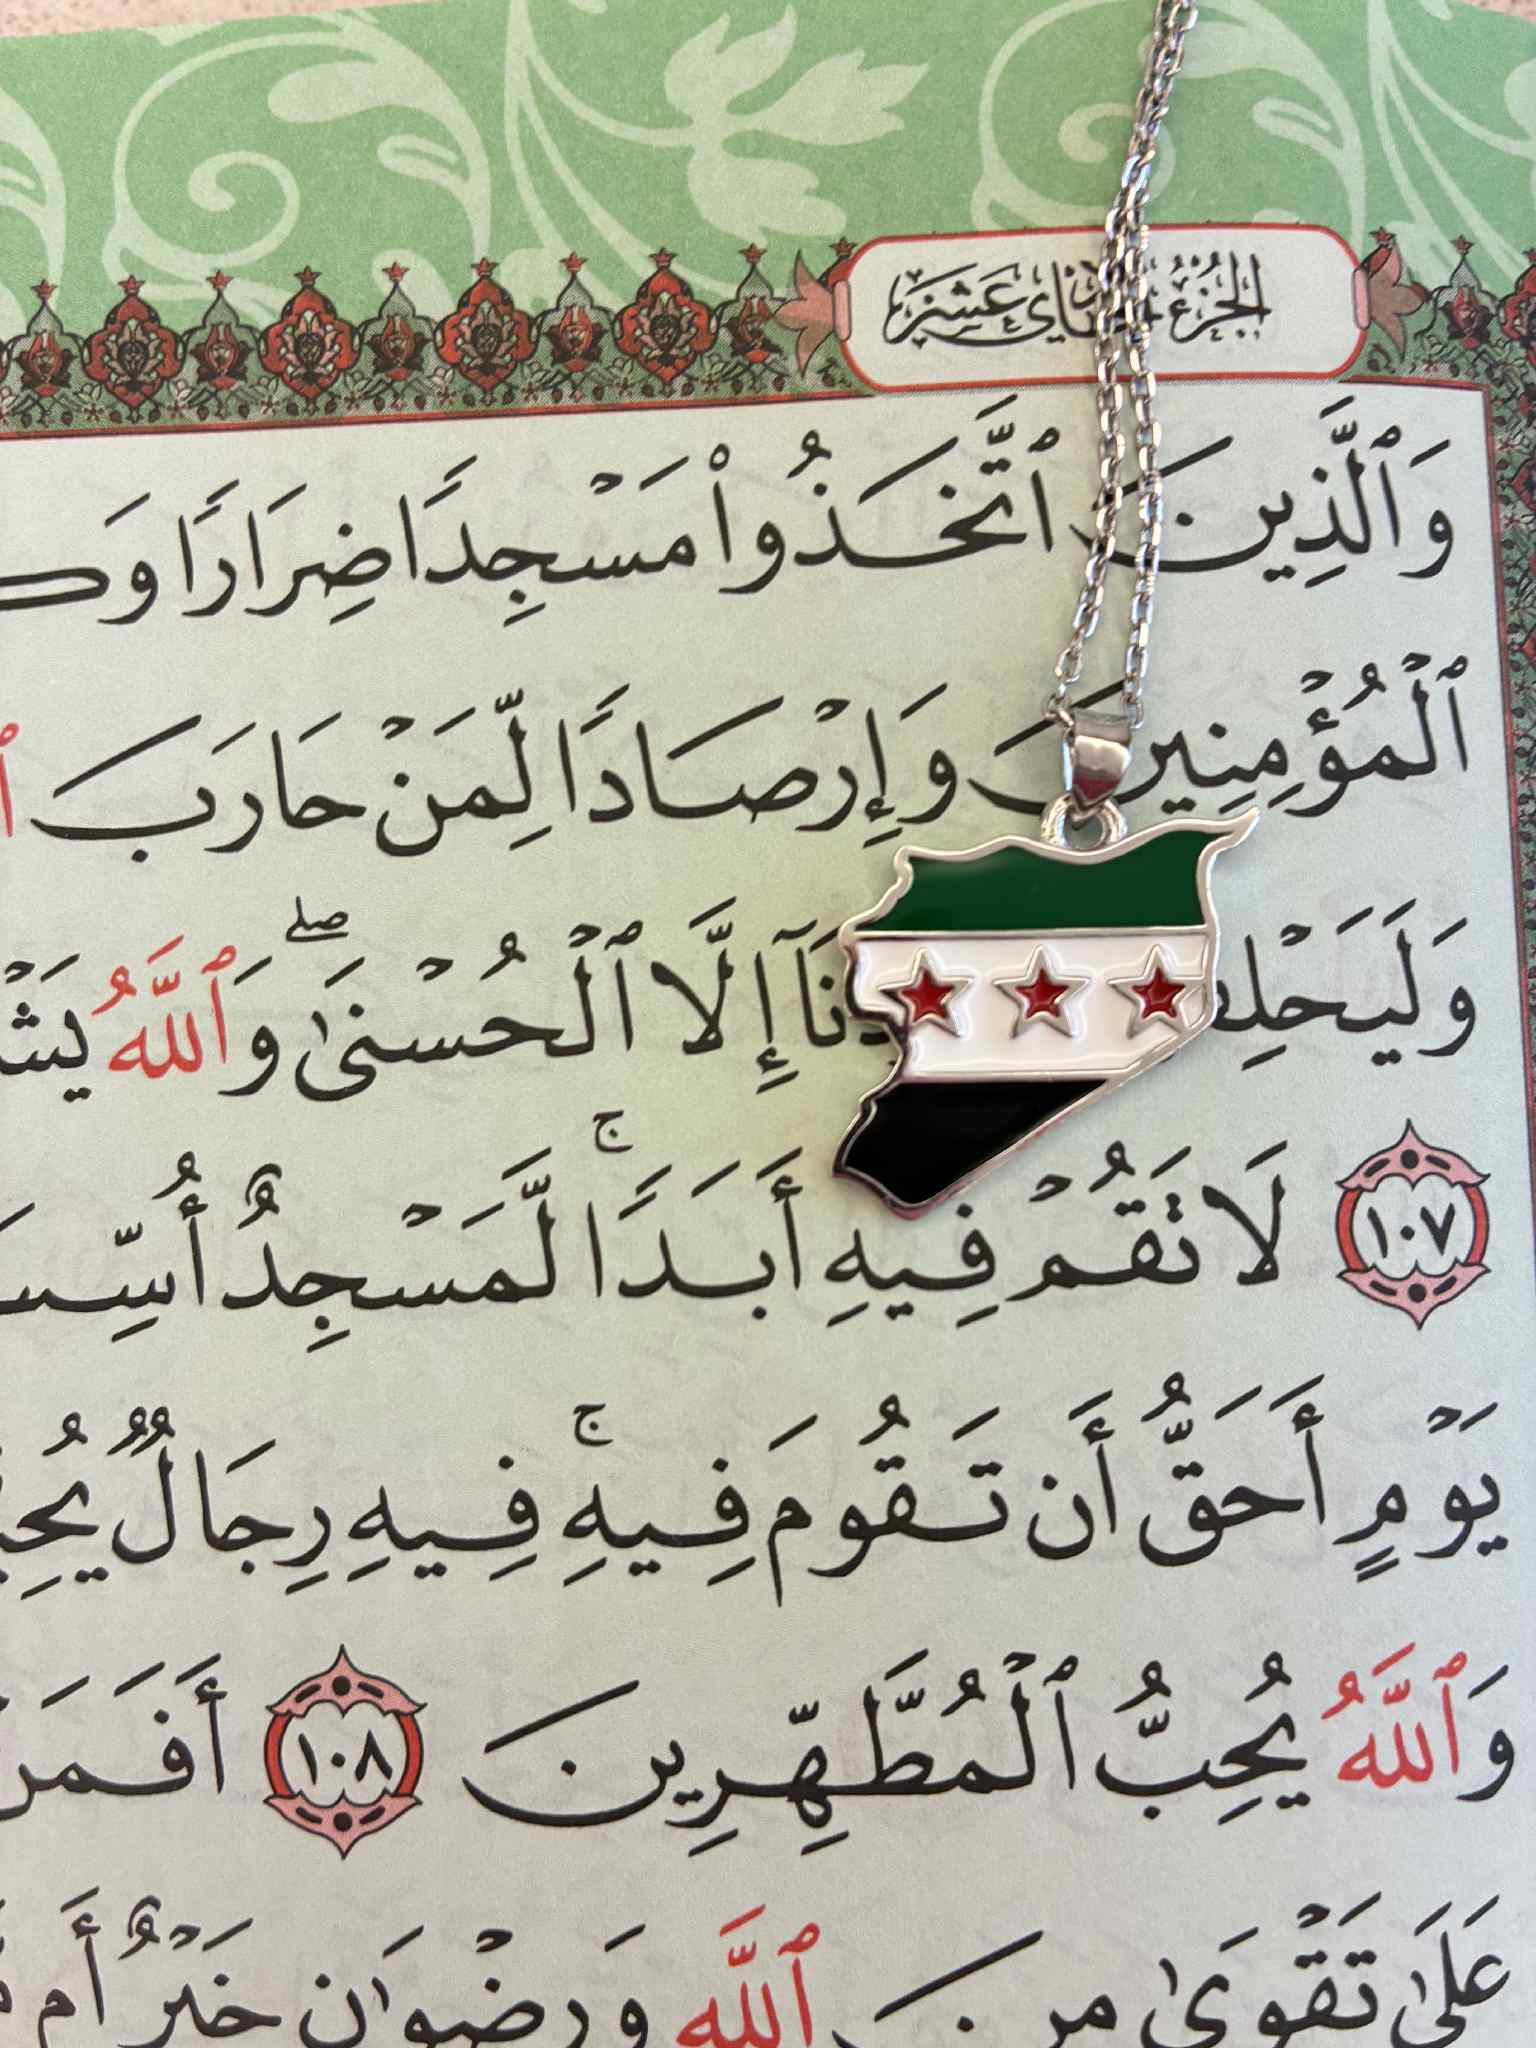 الجزء عشر
وَٱلَّذِينَ ٱتَّخَذُوا۟ مَسْجِدًا ضِرَارًا
ٱلْمُؤْمِنِينَ وَإِرْصَادًا لِّمَنْ حَارَبَ
إِلَّا ٱلْحُسْنَىٰ ۖ وَٱللَّهُ
١٠٧ لَا تَقُمْ فِيهِ أَبَدًا ۚ لَّمَسْجِدٌ
يَوْمٍ أَحَقُّ أَن تَقُومَ فِيهِ ۚ فِيهِ رِجَالٌ
وَٱللَّهُ يُحِبُّ ٱلْمُطَّهِّرِينَ ١٠٨
عَلَىٰ تَقْوَىٰ مِنَ ٱللَّهِ وَرِضْوَٰنٍ خَيْرٌ أَم